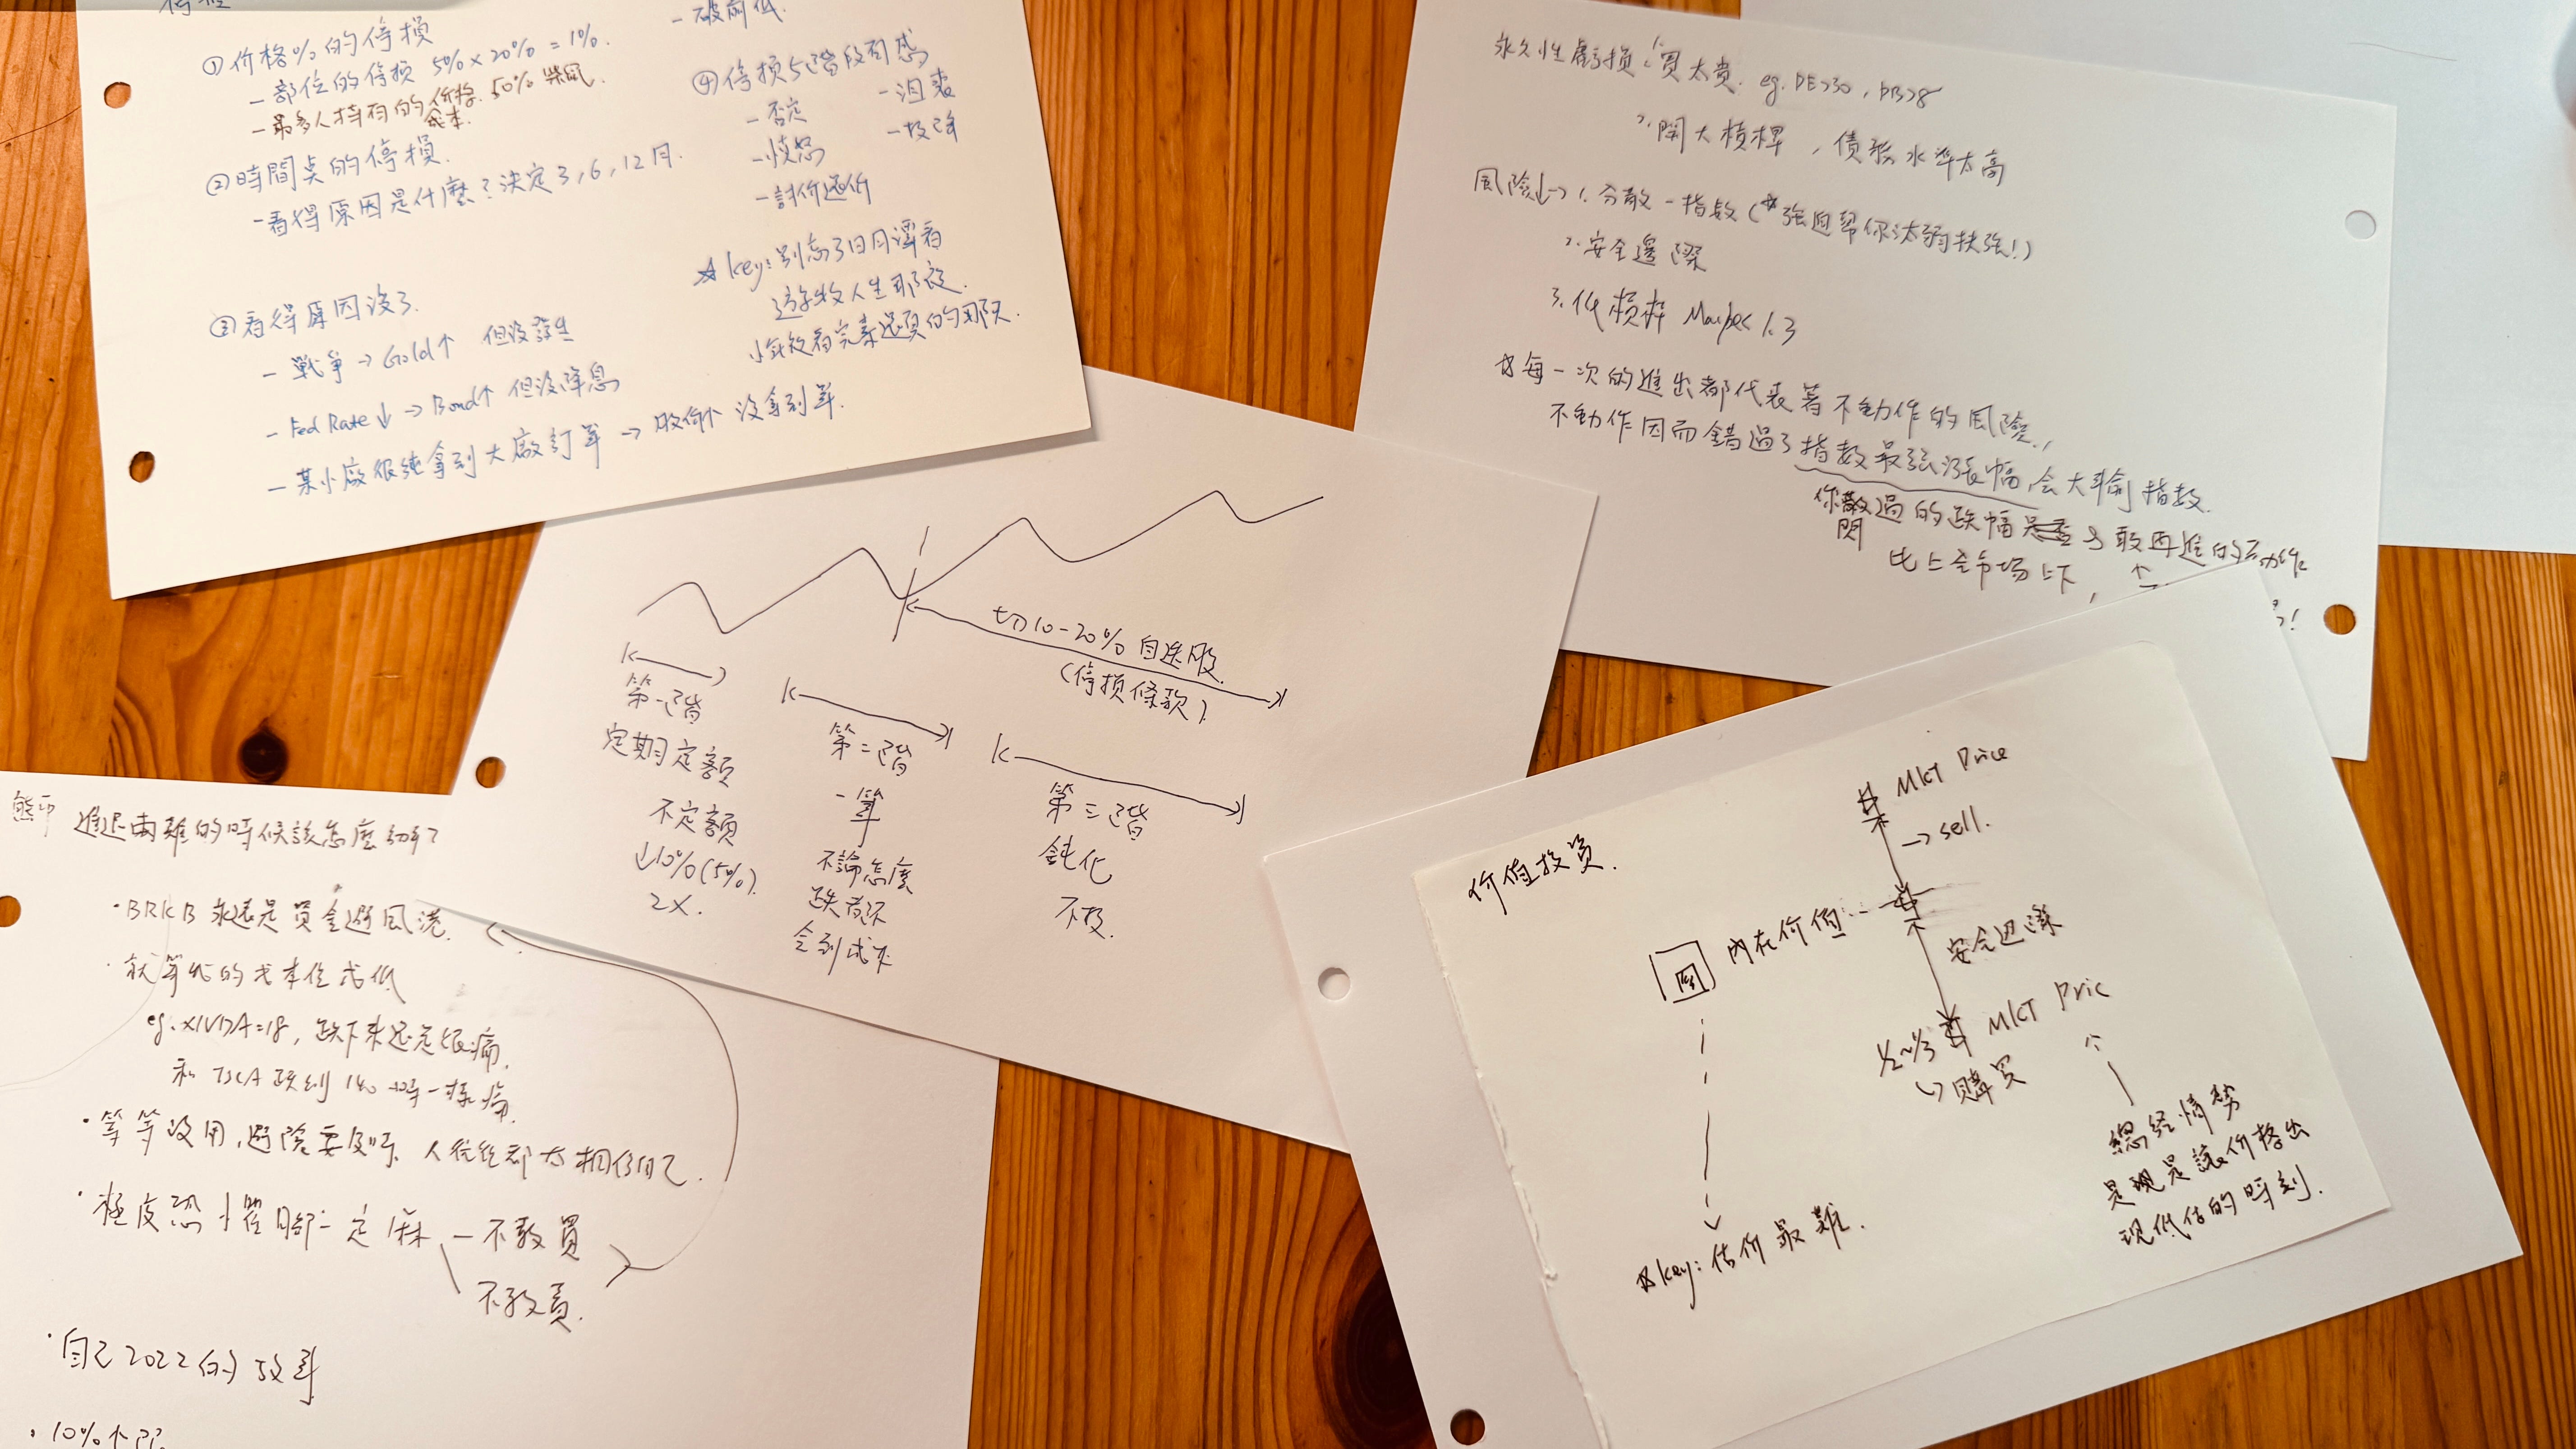 ① 价格%的停損
- 部位的停損 5% x 20% = 1%.
- 最多人持有的价格. 50%
成本.
② 時間点的停損.
- 看得原因是什麼? 決定 3, 6, 12月.
③ 看得原因沒了.
- 戰爭 → Gold↑ 但沒發生
- Fed Rate ↓ → Bond↑ 但沒降息
- 某小廠很純拿到大廠訂單 → 股价↑ 沒拿到單.
- 破前低.
④ 停損5階段
- 否定
- 憤怒
- 討价还价
- 沮喪
☆ key: 別忘了日月潭看
人生那夜.
永久性虧損: 1. 買太貴. eg. PE>30, PB>8
2. 開大槓桿, 債務水準太高
風險↓→ 1. 分散 - 指數 (*強迫幫你汰弱扶強!)
2. 安全邊際
3. 低槓桿 Maybe 1.3
☆ 每一次的進出都代表著不動作的風險.
不動作因而錯過了指數最強漲幅, 会大輸指數.
你 過的跌幅 敢再進的
閃
比上全市場上下,
切 10-20% 自选股.
(停損條款).
第一階
定期定額
不定額
↓10% (5%).
2X.
第二階
一筆
不論怎麼
跌都不
會到成本
第三階
鈍化
不投.
熊市 進退兩難的時候該怎麼辦?
· BRKB 永远是資金避風港.
· 就算你的成本位戶低
跌下來还是很痛.
跌到 140 一樣痛.
· 等等沒用, 避險要及時, 人往往都太相信自己.
· 極度恐懼腳一定麻 - 不敢買
不敢賣.
· 自己 2022 的故事
· 10%
价值投资.
MKT Price
→ sell.
內在价值
安全边際
1/2~1/3 MKT Pric
↳ 購買
☆key: 估价最難.
總經情勢
是現是讓价格出
現低估的時刻.